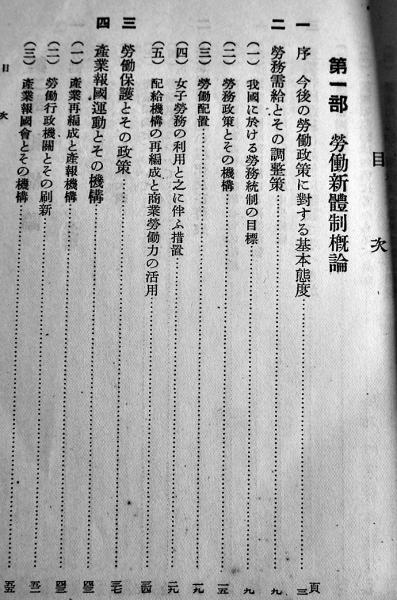 目次
第一部 勞働新體制概論
頁
一 序 今後の勞働政策に對する基本態度…………三
二 勞務需給とその調整策…………九
(一) 我國に於ける勞務統制の目標…………九
(二) 勞務政策とその機構…………一五
(三) 勞働配置…………一九
(四) 女子勞務の利用と之に伴ふ措置…………二九
(五) 配給機構の再編成と商業勞働力の活用…………三四
三 勞働保護とその政策…………三七
四 產業報國運動とその機構…………四三
(一) 產業再編成と產報機構…………四三
(二) 勞働行政機關とその刷新…………
(三) 產業報國會とその機構…………
目次